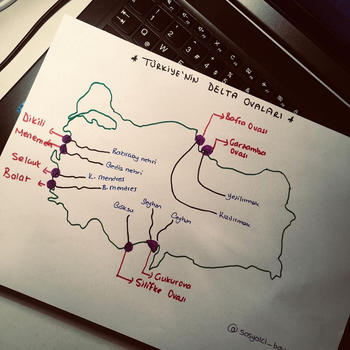 * TÜRKİYE'NİN DELTA OVALARI *
Bafra Ovası
Çarşamba
Ovası
Dikili
Menemen
Selçuk
Balat
Bakırçay nehri
Gediz nehri
K. mendres
B. mendres
Yeşilırmak
Kızılırmak
Göksu
Seyhan
Ceyhan
Çukurova
Silifke Ovası